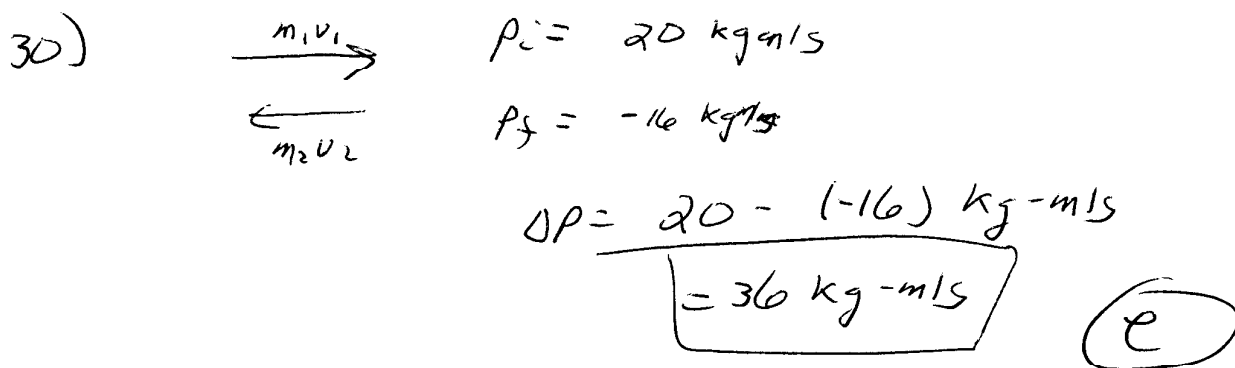 30)
m₁v₁
Pi = 20 kgm/s
m₂v₂
Pf = -16 kgm/s
ΔP = 20 - (-16) kg-m/s
= 36 kg-m/s
e